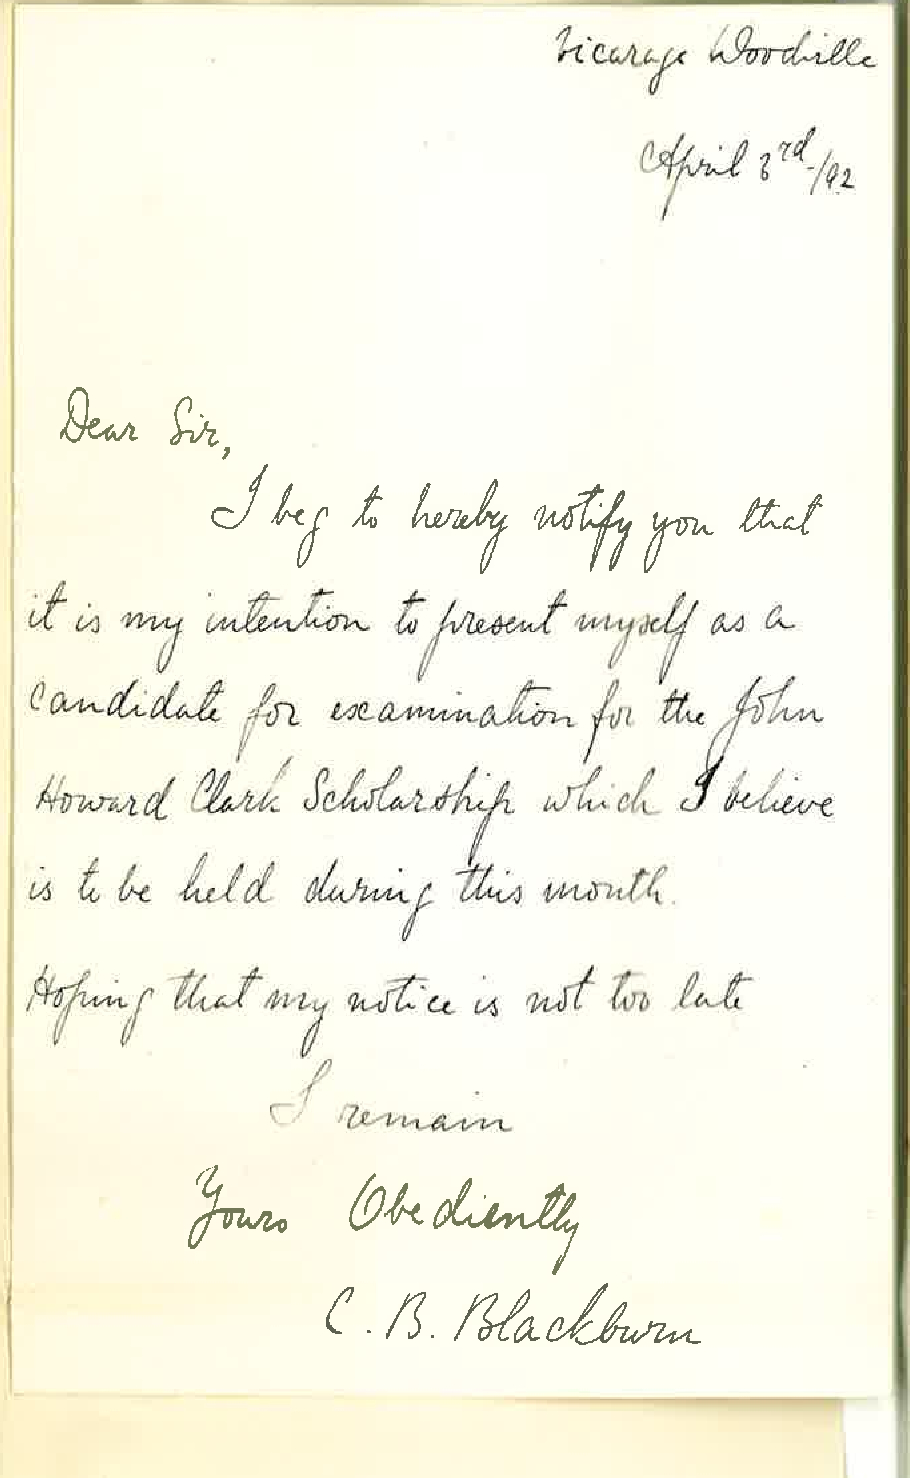 Vicarage Woodville
April 3rd/92
Dear Sir,
I beg to hereby notify you that
it is my intention to present myself as a
Candidate for examination for the John
Howard Clark Scholarship which I believe
is to be held during this month.
Hoping that my notice is not too late
I remain
Yours Obediently
C. B. Blackburn